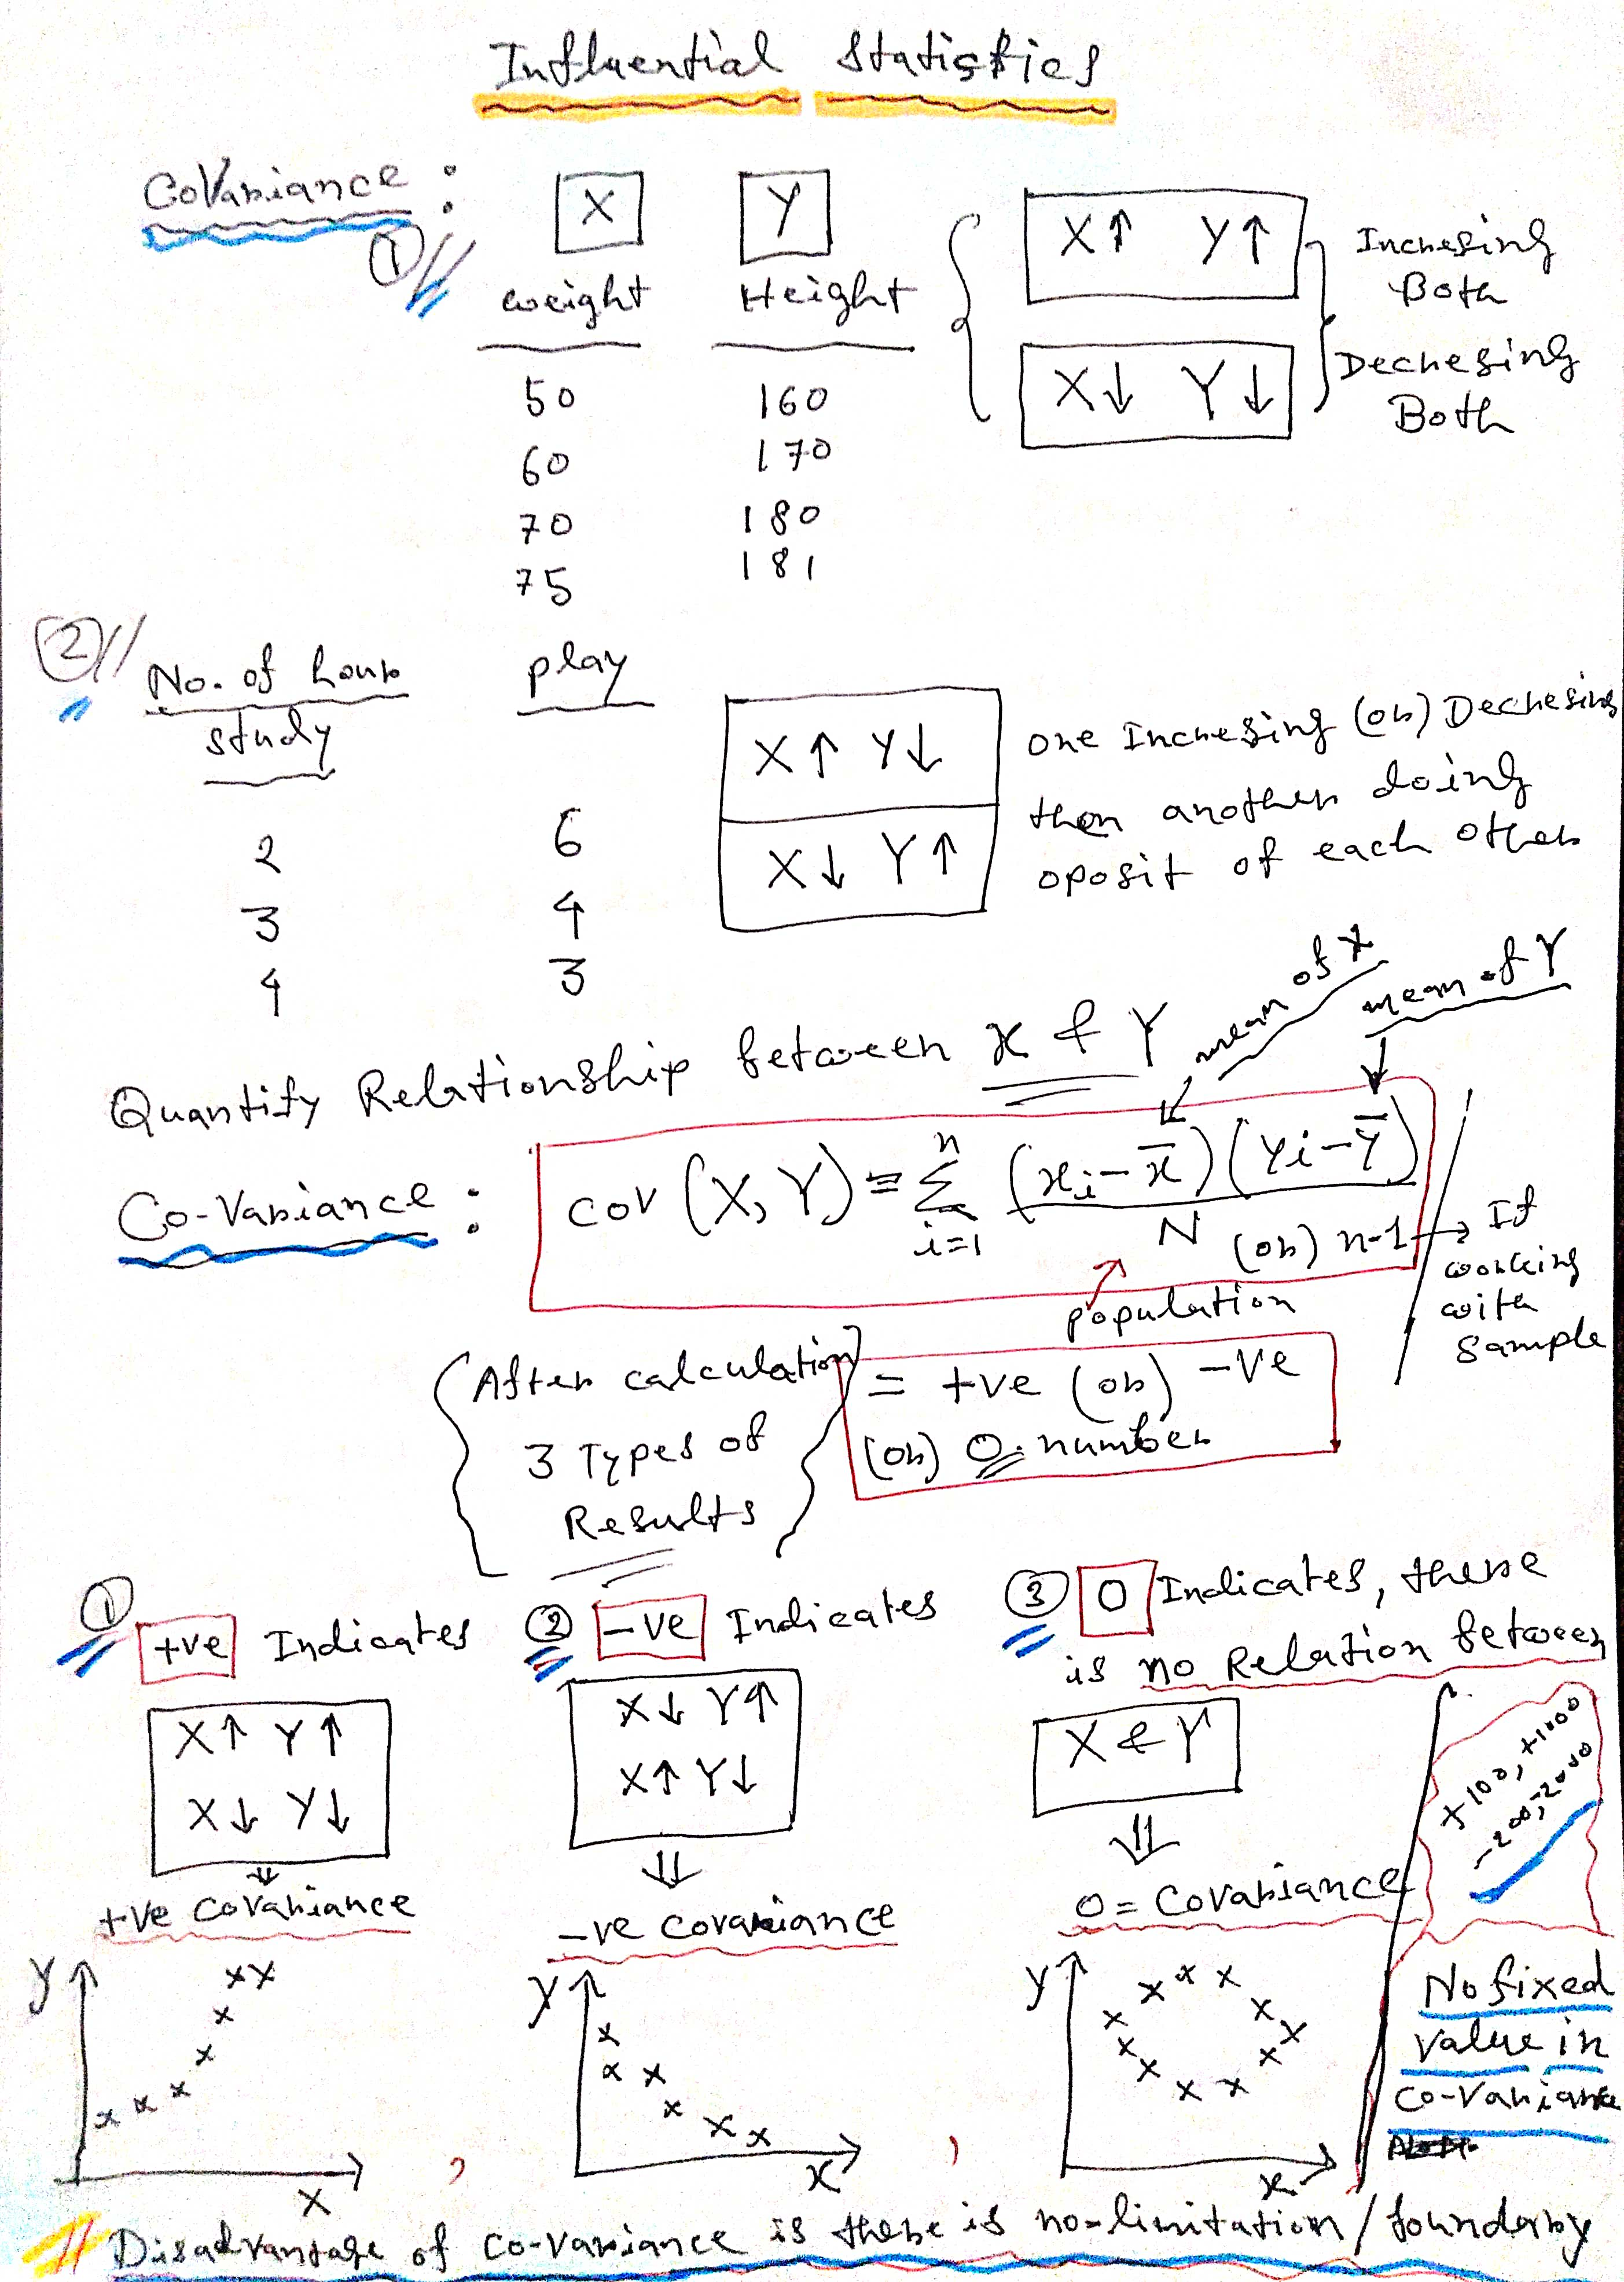 Influential Statistics
CoVariance :
① //
X Y
weight Height
50 160
60 170
70 180
75 181
X↑ Y↑
X↓ Y↓
Incresing
Both
Decresing
Both
② //
No. of hour play
study
2 6
3 4
4 3
X↑ Y↓
X↓ Y↑
one Incresing (or) Decresing
then another doing
oposit of each other
Quantify Relationship between x & Y
mean of X
mean of Y
Co-Variance : cov (X, Y) = n Σ i=1 (xi - x̄) (Yi - Ȳ) / N (or) n-1 → If
working
with
Sample
population
(After calculation) = +ve (or) -ve
3 Types of (or) 0 number
Results
① +ve Indicates
X↑ Y↑
X↓ Y↓
⇓
+ve Covariance
Y
X
② -ve Indicates
X↓ Y↑
X↑ Y↓
⇓
-ve covariance
Y
X
③ 0 Indicates, there
is no Relation between
X & Y
⇓
0 = Covariance
Y
X
+100, +1000
-200, -2000
No fixed
Value in
Co-Variance
// Disadvantage of Co-variance is there is no-limitation/boundary